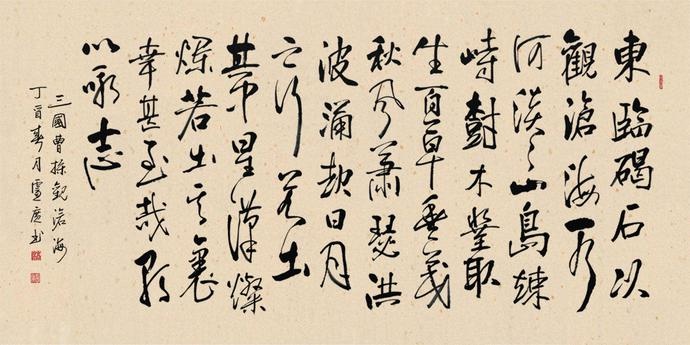 東臨碣石以
觀滄海水
何淡淡山島竦
峙樹木叢
生百草豐茂
秋風蕭瑟洪
波涌起日月
之行若出
其中星漢燦
爛若出其裏
幸甚至哉歌
以詠志
三國曹操觀滄海
丁酉春月盧書